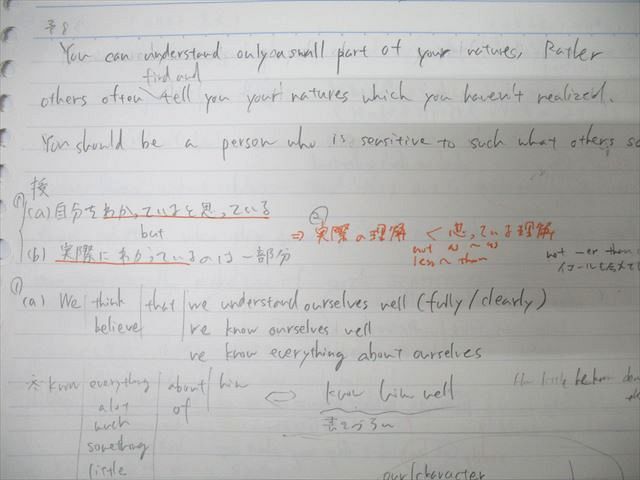 予8
You can understand only a small part of your natures, Rather
find and
others often tell you your natures which you haven't realized.
You should be a person who is sensitive to such what others sa
授
① (a) 自分をわかっていると思っている
but
(b) 実際にわかっているのは一部分
② ⇒ 実際の理解 < 思っている理解
not as ~ as
less ~ than
not -er than
イコールも含めて
① (a) We think that we understand ourselves well (fully/clearly)
believe we know ourselves well
we know everything about ourselves
※ know everything about him ⇔ know him well
a lot of
much
something
little
our/character